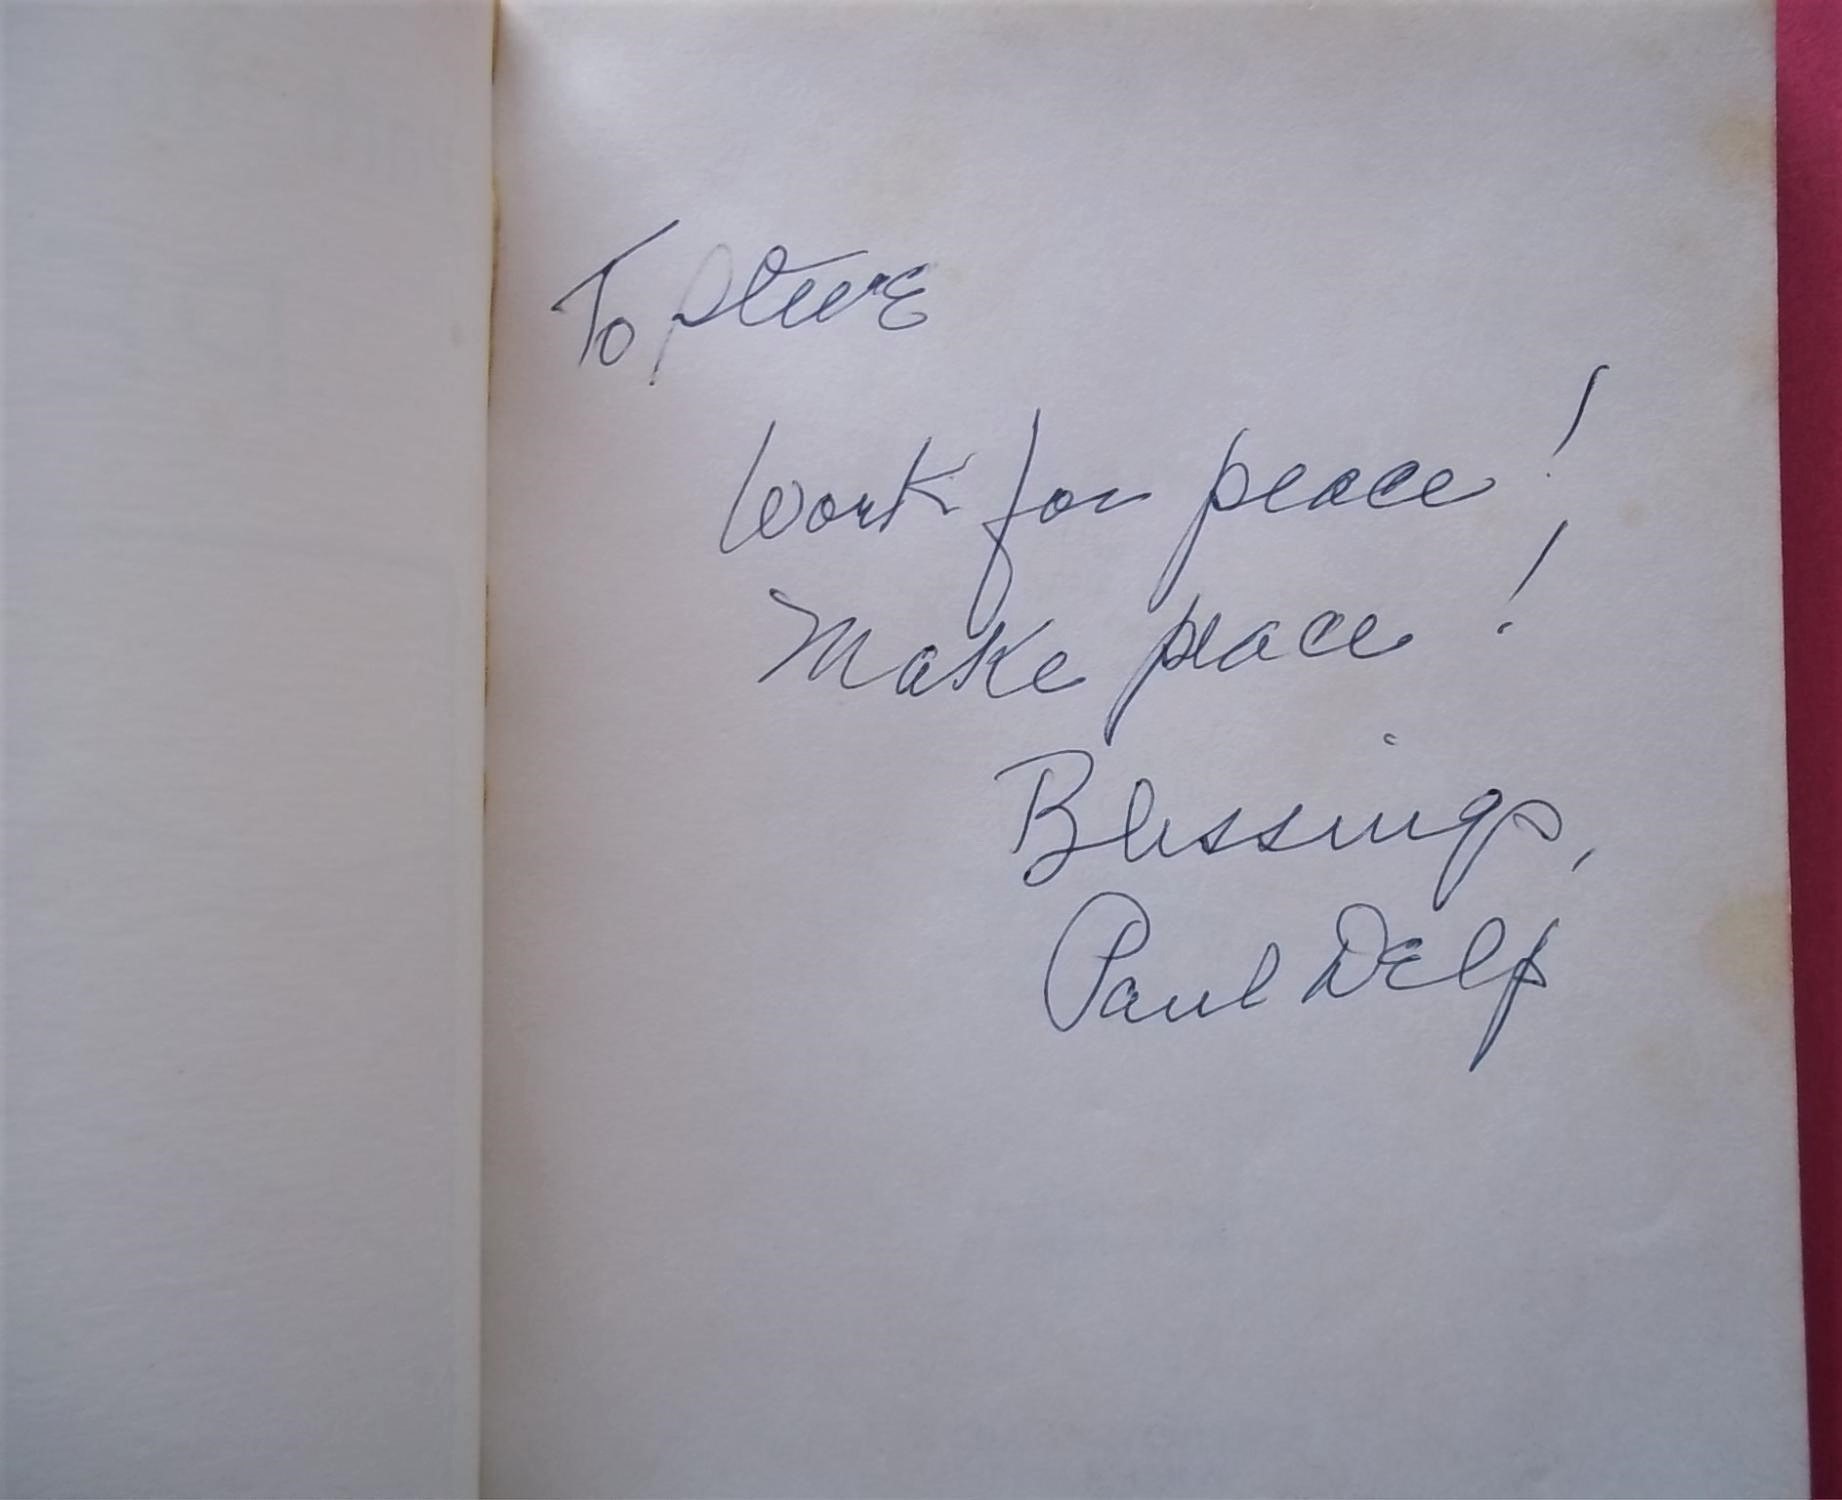 To Steve
Work for peace!
Make peace!
Blessings,
Paul Delp